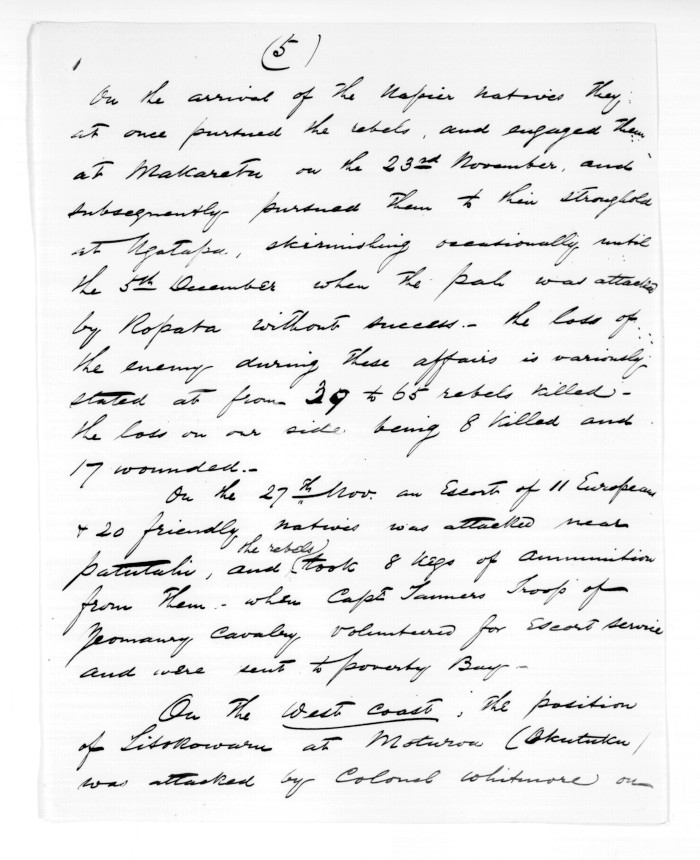 (5)
On the arrival of the Napier natives they
at once pursued the rebels, and engaged them
at Makaretu on the 23rd November, and
subsequently pursued them to their stronghold
at Ngatapa, skirmishing occasionally until
the 5th December when the pah was attacked
by Ropata without success. - the loss of
the enemy during these affairs is variously
stated at from 39 to 65 rebels killed -
the loss on our side being 8 killed and
17 wounded. -
On the 27th Nov. an Escort of 11 European
+ 20 friendly natives was attacked near
the rebels
patutahi, and (took 8 Kegs of ammunition
from them. - when Capt Tanners Troop of
Yeomanry Cavalry volunteered for Escort service
and were sent to poverty Bay -
On the West Coast, the position
of Titokowaru at Moturoa (Okutuku)
was attacked by Colonel Whitmore on